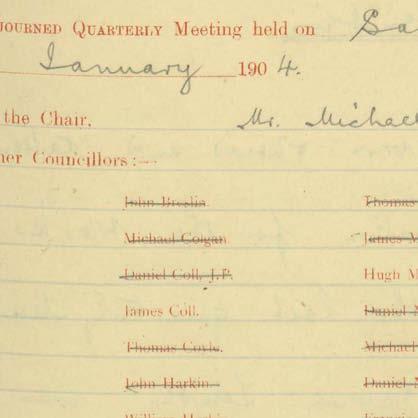 JOURNED QUARTERLY Meeting held on Sa
January 1904.
the Chair. Mr. Michael
her Councillors:—
John Breslin. Thomas
Michael Colgan James M
Daniel Coll, J.P. Hugh M
James Coll. Daniel M
Thomas Coyle. Michael
John Harkin. Daniel M